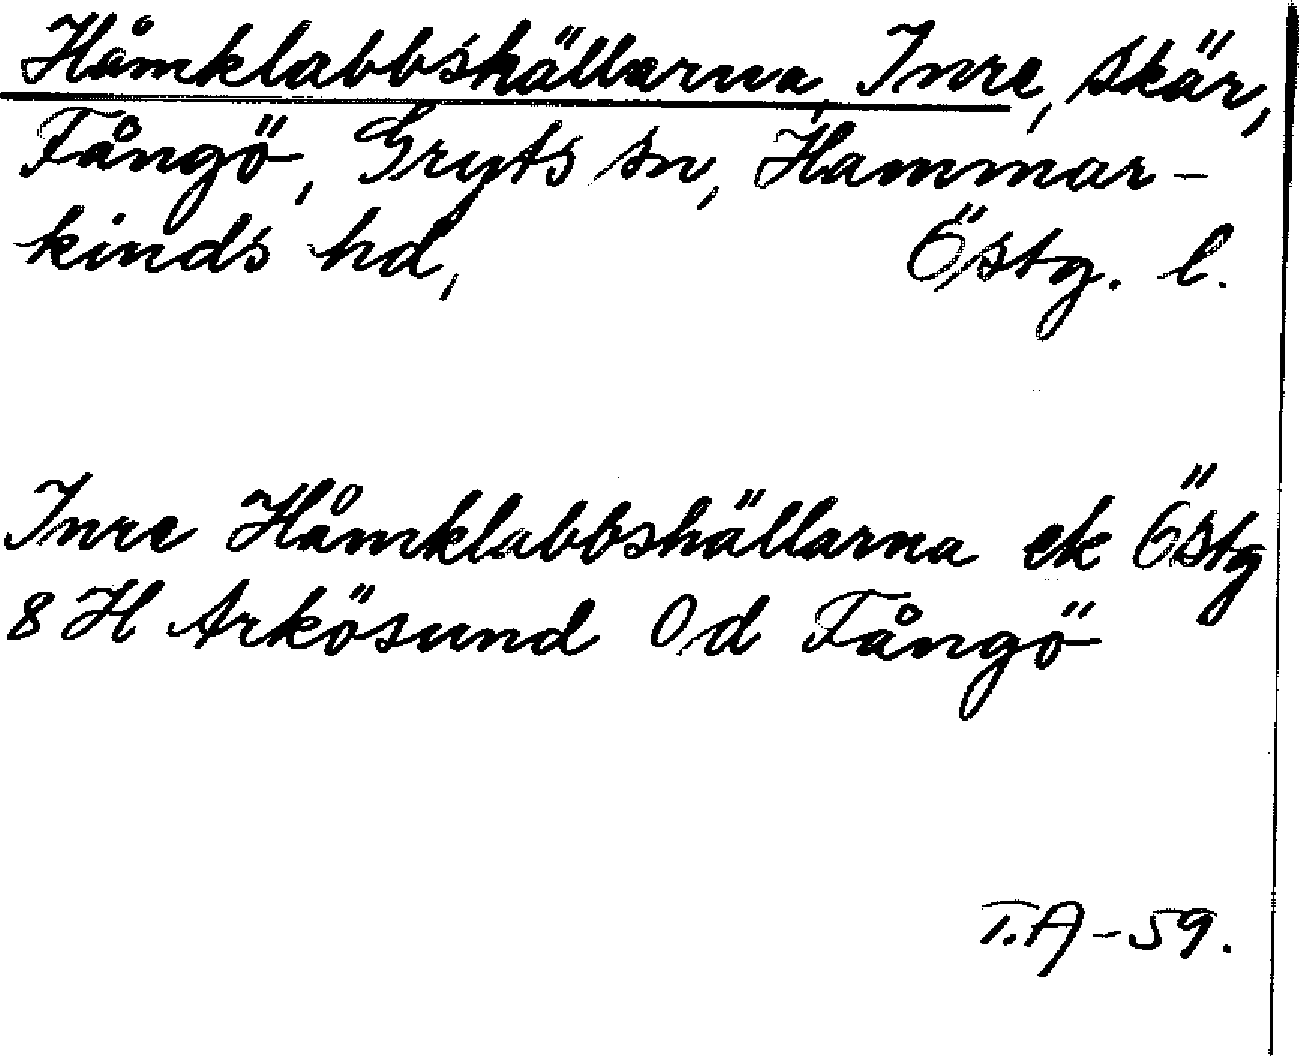 Håmklabbshällarna, Inre, skär,
Fångö, Gryts sn, Hammar-
kinds hd, Östg. l.
Inre Håmklabbshällarna ek Östg
8 H Arkösund Od Fångö
T.A-59.